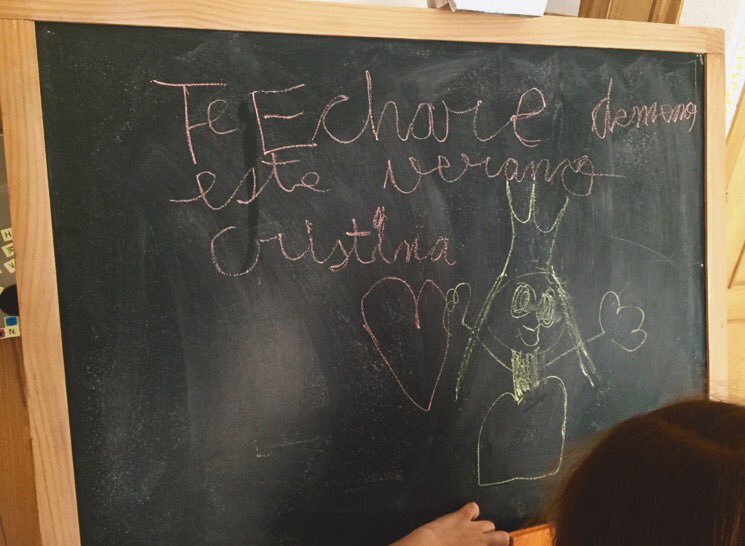 Te Echare demenos
este verano
cristina